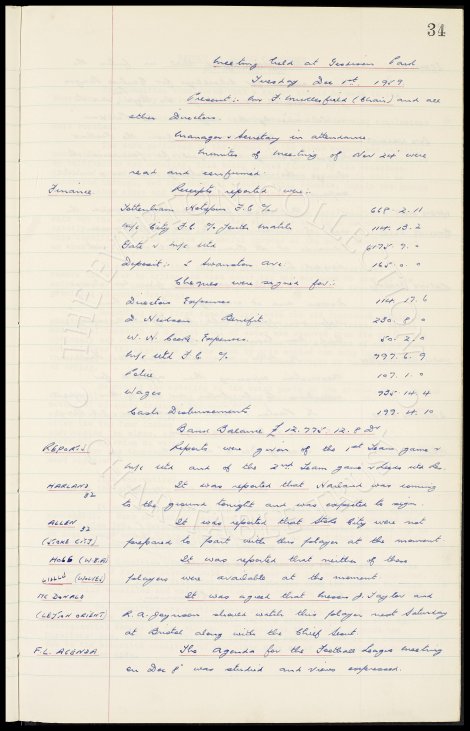 34
Meeting held at Goodison Park
Tuesday. Dec 1st 1959.
Present:- Mr F. Micklesfield (Chair) and all
other Directors.
Manager & Secretary in attendance.
Minutes of meeting of Nov 24th were
read and confirmed.
Finance. Receipts reported were:-
Tottenham Hotspur F.C. %
M/c City F.C. % Youth match 114. 13. 2
Gate v M/c Utd 6175. 9. 0
Deposit:- Swanston Ave. 165. 0. 0
Cheques were signed for:-
Directors Expenses 114. 17. 6
Benefit 230. 8. 0
W. H. Cooke Expenses. 50. 2. 0
M/c Utd F.C. % 997. 6. 9
Police 107. 1. 0
Wages 935. 14. 4
Cash Disbursements 199. 4. 10
Bank Balance £12.775. 12. 8 Dr
REPORTS. Reports were given of the 1st Team game v
M/c Utd and of the 2nd Team game v
HARLAND It was reported that Harland was coming
to the ground tonight and was expected to sign.
ALLEN It was reported that Stoke City were not
(STOKE CITY) prepared to part with this player at the moment
(W.B.A) It was reported that neither of these
(WOLVES) players were available at the moment.
McDONALD It was agreed that Messrs J. Taylor and
(LEYTON ORIENT) R. A. Joynson should watch this player next Saturday
at Bristol along with the Chief Scout.
F.L. AGENDA The Agenda for the Football League meeting
on Dec 8th was studied and views expressed.